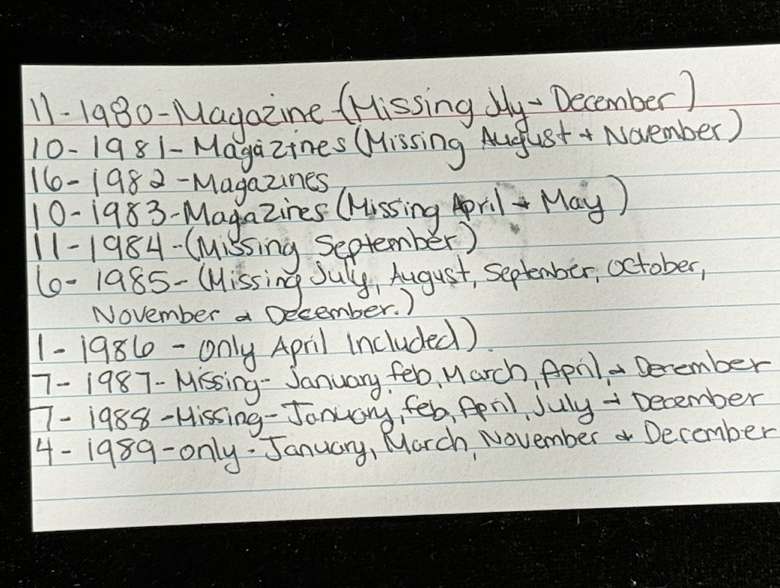 11-1980-Magazine (Missing July + December)
10-1981-Magazines (Missing August + November)
16-1982-Magazines
10-1983-Magazines (Missing April + May)
11-1984-(Missing September)
6-1985-(Missing July, August, September, October,
November & December.)
1-1986-only April Included)
7-1987-Missing-January, feb, March, April, + December
7-1988-Missing-January, feb, April, July + December
4-1989-only-January, March, November & December